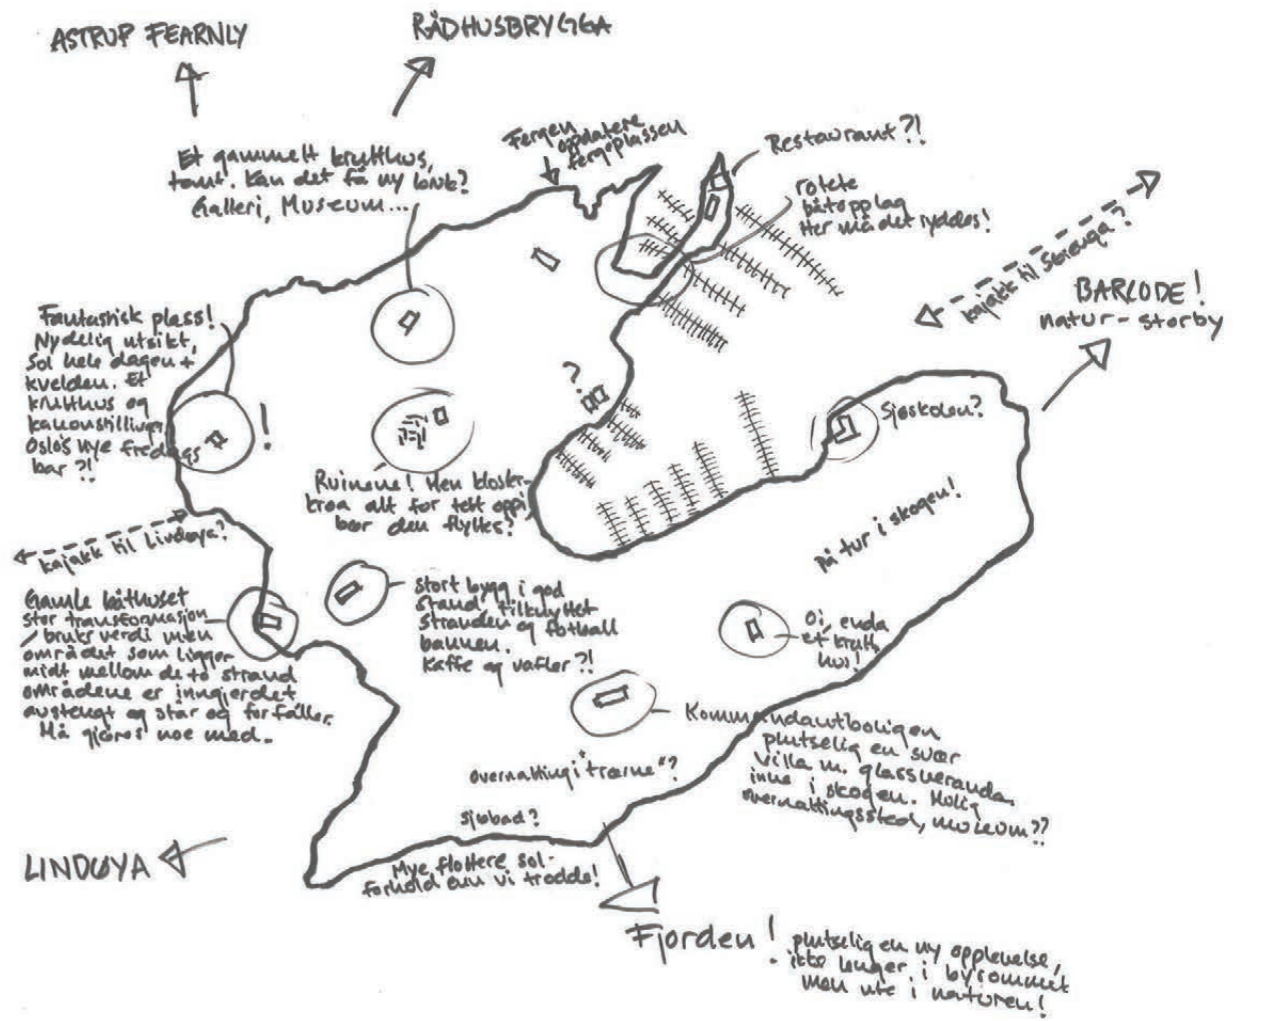 ASTRUP FEARNLY
RÅDHUSBRYGGA
Et gammelt krutthus,
tomt. Kan det få ny bruk?
Galleri, Museum...
Fergen
oppdatere
fergeplassen
Restaurant?!
rotete
båtopplag
Her må det ryddes!
kajakk til Sørenga?
BARCODE!
natur-storby
Fantastisk plass!
Nydelig utsikt,
Sol hele dagen +
kvelden. Et
krutthus og
kanonstillinger
Oslo's nye fredags
bar?!
!
?
Sjøskolen?
Ruinene! Men kloster-
kroa alt for tett oppi
bør den flyttes?
på tur i skogen!
kajakk til Lindøya?
Gamle båthuset
stor transformasjon
/bruks verdi men
området som ligger
midt mellom de to strand
områdene er inngjerdet
avstengt og står og forfaller.
Må gjøres noe med.
stort bygg i god
stand, tilknyttet
stranden og fotball
banen.
Kaffe og vafler?!
Oi, enda
et krutt
hus!
Kommandantboligen
plutselig en svær
villa m. glassveranda
inne i skogen. Mulig
overnattingssted, museum??
overnatting i "trærne"?
sjøbad?
LINDØYA
Mye flottere sol-
forhold enn vi trodde!
Fjorden!
plutselig en ny opplevelse,
ikke lenger i byrommet
men ute i naturen!